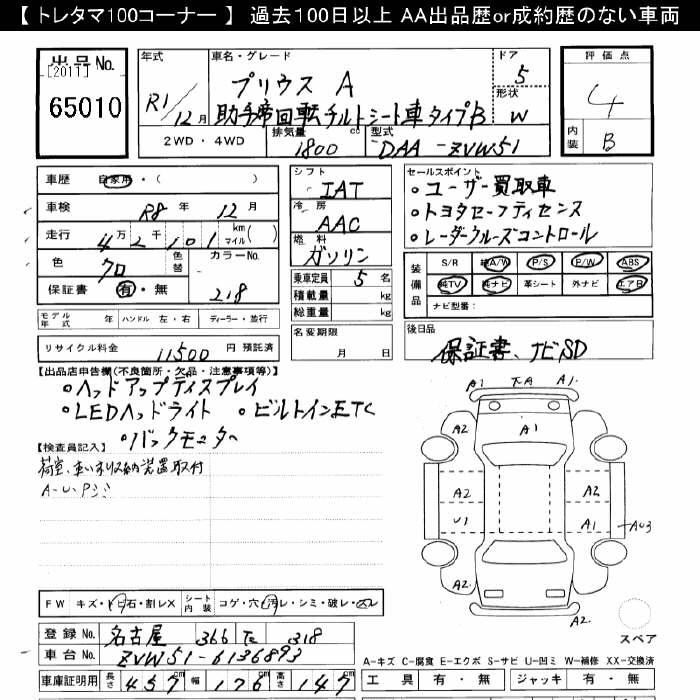 【 トレタマ100コーナー 】 過去100日以上 AA出品歴or成約歴のない車両
出品No.
[2011]
65010
年式
R1/12月
車名・グレード
プリウス A
助手席回転チルトシート車 タイプB
ドア
5
形状
W
2WD・4WD
排気量
1800 cc
型式
DAA-ZVW51
評価点
4
内装
B
車歴 自家用・( )
車検 R8年 12月
走行 4万2千101 km マイル( )
色 クロ
色替
カラーNo.
218
保証書 有・無
モデル年式 年 ハンドル 左・右 ディーラー・並行
リサイクル料金 11500 円 預託済
シフト
IAT
冷房
AAC
燃料
ガソリン
乗車定員 5 名
積載量 kg
総重量 kg
名変期限
月 日
セールスポイント
・ユーザー買取車
・トヨタセーフティセンス
・レーダークルーズコントロール
装備品
S/R A/W P/S P/W ABS
純TV 純ナビ 革シート 外ナビ エアB
ナビ型番:
後日品
保証書、ナビSD
【出品店申告欄(不良箇所・欠品・注意事項等)】
・ヘッドアップディスプレイ
・LEDヘッドライト ・ビルトインETC
・バックモニター
【検査員記入】
荷室、車いす収納装置取付
A-U-Pジミ
A1 下A A1
A2 A1 A2
A2 A2
U1 A1 AU3
A2 A2
A2
スペア
FW キズ・トビ石・割レX シート内装 コゲ・穴・汚レ・シミ・破レ・スレ
登録No. 名古屋 366 て 318
車台No. ZVW51-6136893
車庫証明用 長さ 457cm 幅 176cm 高さ 147cm
A-キズ C-腐食 E-エクボ S-サビ U-凹ミ W-補修 XX-交換済
工具 有・無 ジャッキ 有・無